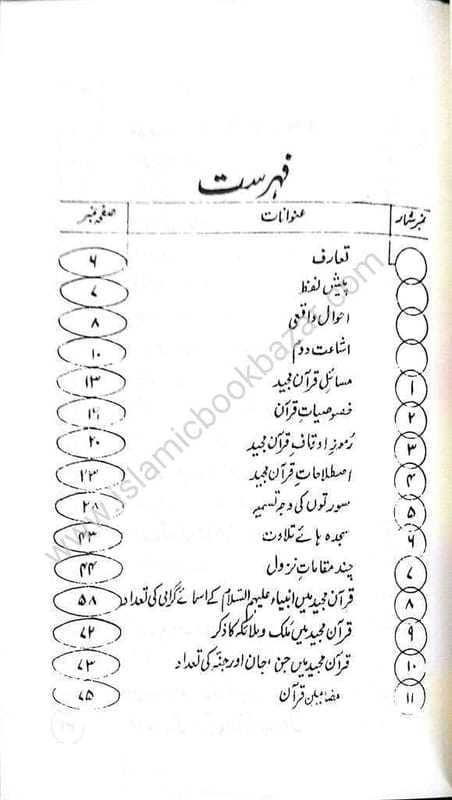 فہرست
نمبر شمار عنوانات صفحہ نمبر
تعارف ۶
پیش لفظ ۷
احوال واقعی ۸
اشاعت دوم ۱۰
۱ مسائل قرآن مجید ۱۳
۲ خصوصیات قرآن
۳ رموز اوقاف قرآن مجید ۲۰
۴ اصطلاحات قرآن مجید ۲۳
۵ سورتوں کی وجہ تسمیہ ۲۸
۶ سجدہ ہائے تلاوت ۴۳
۷ چند مقامات نزول ۴۴
۸ قرآن مجید میں انبیاء علیہم السلام کے اسمائے گرامی کی تعداد ۵۸
۹ قرآن مجید میں ملک و ملائکہ کا ذکر ۷۲
۱۰ قرآن مجید میں جن، جان اور جنّہ کی تعداد ۷۳
۱۱ مضامین قرآن ۷۵
www.islamicbookbazar.com